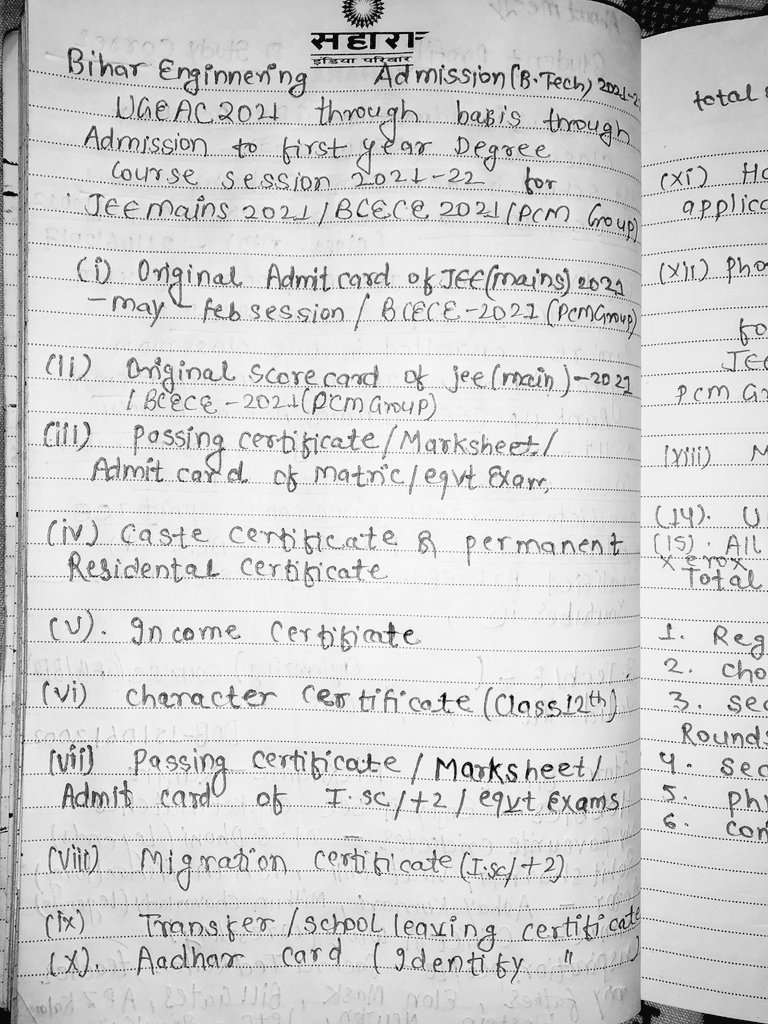 सहारा
इंडिया परिवार
Bihar Enginnering Admission (B.Tech) 2021-2
UGEAC 2021 through basis through
Admission to first year Degree
Course session 2021-22 for
JEE mains 2021 / BCECE 2021 (PCM Group)
(i) Original Admit card of JEE (mains) 2021
- may - feb session / BCECE-2021 (PCM Group)
(ii) Original Score card of jee (main) - 2021
/ BCECE - 2021 (PCM Group)
(iii) passing certificate / Marksheet /
Admit card of matric / eqvt Exam,
(iv) Caste certificate & permanent
Residental certificate
(v). Income Certificate
(vi) character certificate (Class 12th)
(vii) Passing certificate / Marksheet /
Admit card of I.sc / +2 / eqvt Exams
(viii) Migration certificate (I.sc / +2)
(ix) Transfer / school leaving certificate
(x). Aadhar card ( Identify " )
total
(xi) Ha
applica
(xii) Pho
fo
JEE
PCM G
(xiii) M
(14). U
(15). All
xerox
Total
1. Reg
2. cho
3. sec
Rounds
4. sec
5. phy
6. con